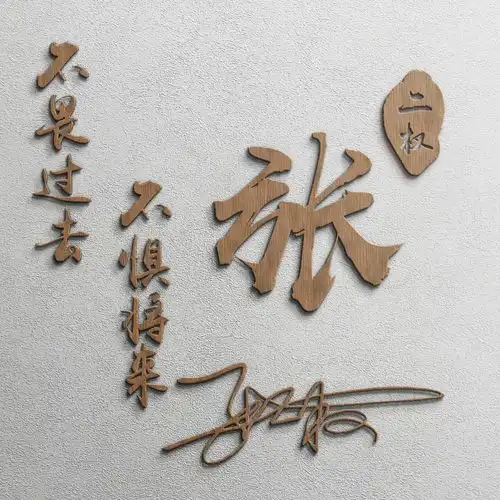 不畏过去
不惧将来
张
二权